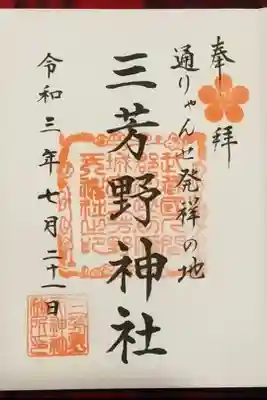 奉拝
通りゃんせ発祥の地
三芳野神社
令和三年七月二十一日